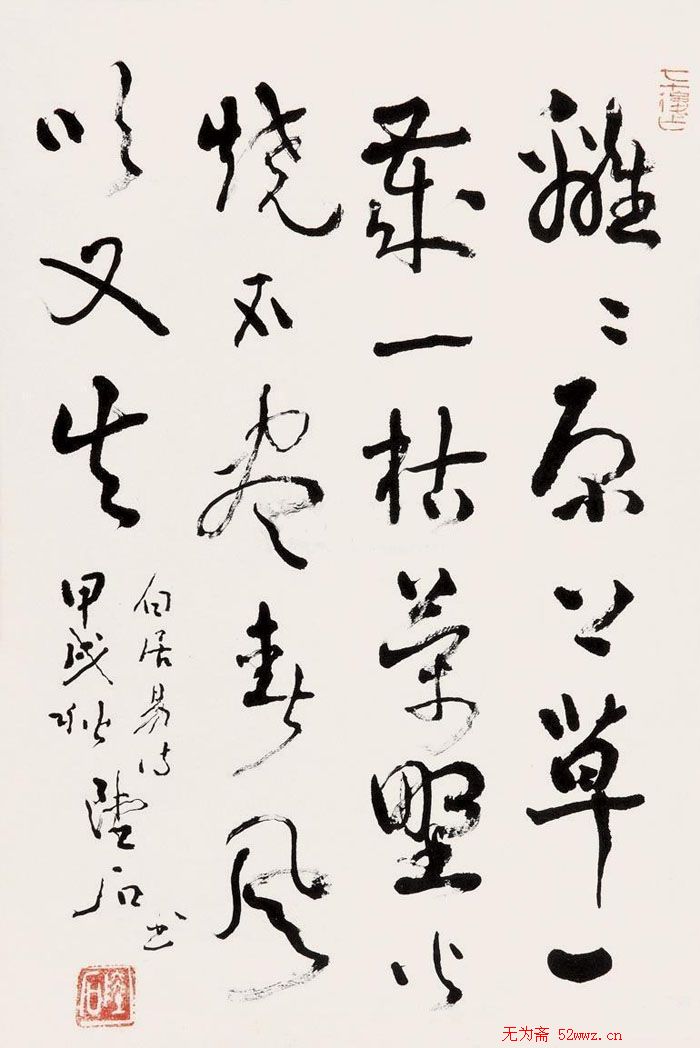 離〻原上草一
歲一枯榮野火
燒不盡春風
吹又生
白居易詩
甲戌秋 石書
无为斋 52wwz.cn